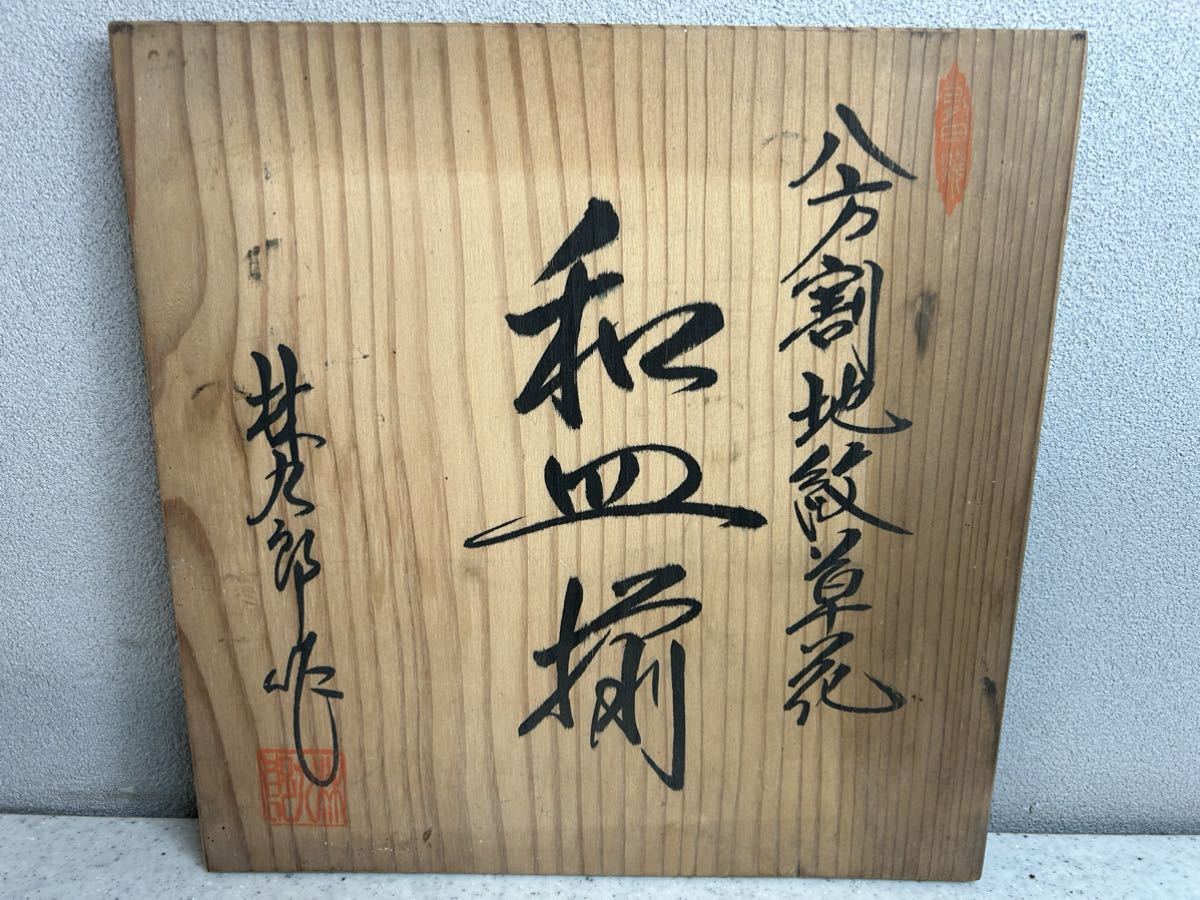 八方割地紋草花
和皿揃
林九郎作